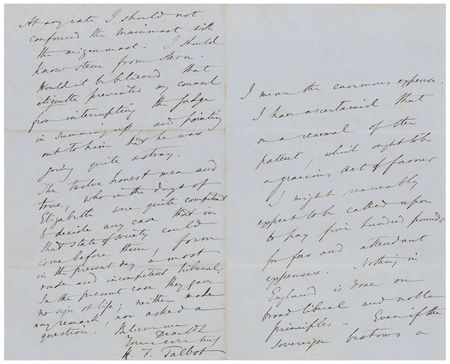 At any rate I should not
confound the mainmast with
the mizenmast. I should
know stem from stern.
Would it be believed that
etiquette prevented my counsel
from interrupting the Judge
in summing up and pointing
out to him that he was
going quite astray.
The twelve honest men and
true, who in the days of
Elizabeth were quite competent
to decide any case that in
that state of society could
come before them, form
in the present day a most
rude and incompetent tribunal.
In the present case they gave
no sign of life; neither made
any remark, nor asked a
question. Believe me
Dear
Yours very truly
H. F. Talbot
I mean the enormous expense.
I have ascertained that
on a renewal of the
patent, which ought to be
a gracious act of favour
I might reasonably
expect to be called upon
to pay five hundred pounds
for fees and attendant
expenses. Nothing in
England is done on
broad liberal and noble
principles – Even if the
sovereign bestows a